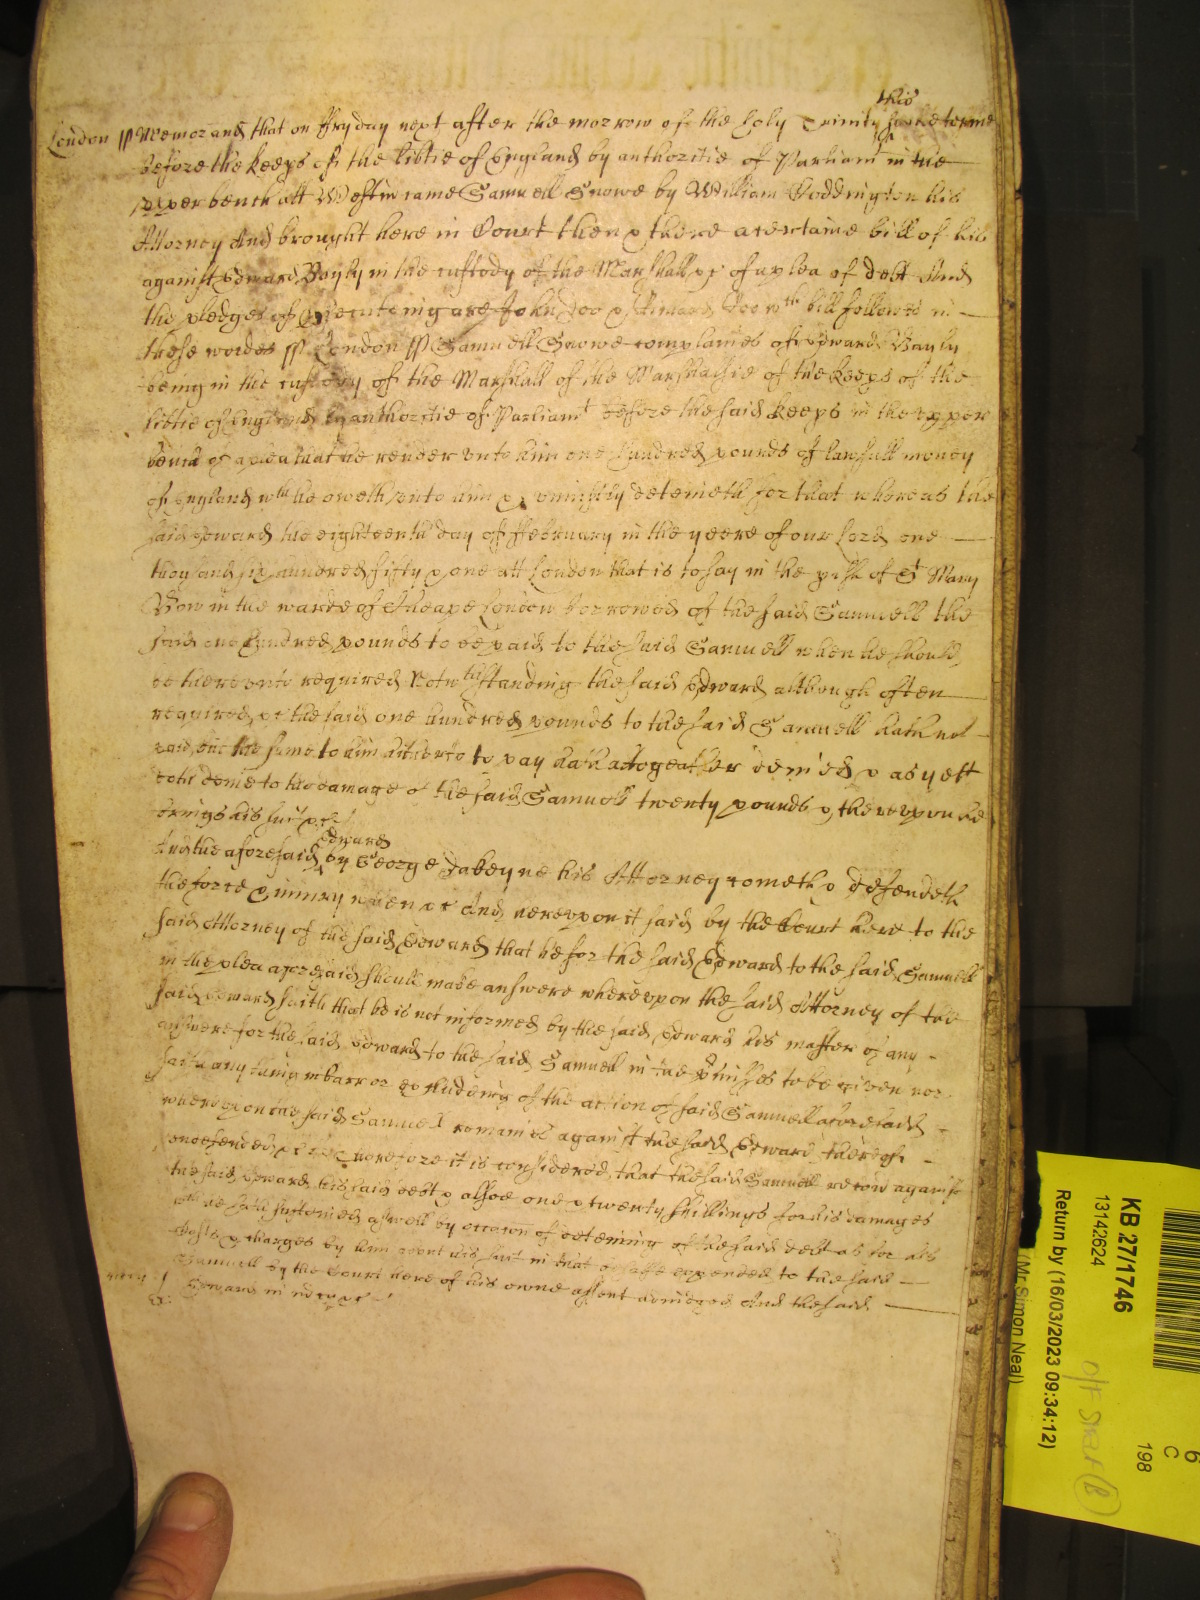 this
London ss Memorand that on ffryday next after the morrow of the holy Trinity same terme
before the keeps of the libtie of England by authoritie of Parliamt in the
upper bench att Westm came Samuell Snowe by William Boddington his
Attorney And brought here in Court then & there a certaine bill of his
against Edward Bayly in the custody of the Marshall &c of a plea of debt And
the pledges of psecuteing are John Doo & Richard Roo wch bill followes in
these wordes ss London ss Samuell Snowe complaines of Edward Bayly
being in the custody of the Marshall of the Marshalsie of the keeps of the
libtie of England by authoritie of Parliamt before the said keeps in the upper
bench of a plea that he render unto him one hundred pounds of lawfull money
of England wch he oweth unto him & uniustly deteineth for that whereas the
said Edward the eighteenth day of ffebruary in the yeere of our Lord one
thousand six hundred fifty & one att London that is to say in the pish of St Mary
Bow in the warde of Cheape London borrowed of the said Samuell the
said one hundred pounds to be paid to the said Samuell when he should
be thereunto required Notwthstanding the said Edward although often
required &c the said one hundred pounds to the said Samuell hath not
paid but the same to him hitherto to pay hath altogeather denied & as yett
doth denie to the damage of the said Samuell twenty pounds & thereupon he
brings his suit &c
Edward
And the aforesaid by George Dabeyne his Attorney cometh & defendeth
the force & iniury when &c And hereupon it said by the Court here to the
said Attorney of the said Edward that he for the said Edward to the said Samuell
in the plea aforesaid should make answere whereupon the said Attorney of the
said Edward saith that he is not informed by the said Edward his master of any
answere for the said Edward to the said Samuell in the pmisses to be given nor
saith any thing in barr or pcludeing of the action of said Samuell aforesaid
whereupon the said Samuell remaines against the said Edward thereof
undefended &c Therefore it is considered that the said Samuell recov against
the said Edward his said debt & alsoe one & twenty shillings for his damages
wch he hath susteined aswell by occasion of deteining of the said debt as for his
Costs & charges by him about his suit in that behalfe expended to the said
Samuell by the Court here of his owne assent adiudged And the said
mercy Edward in mercy &c
KB 27/1746
13142624
Return by (16/03/2023 09:34:12)
(Mr Simon Neal)
6
C
198